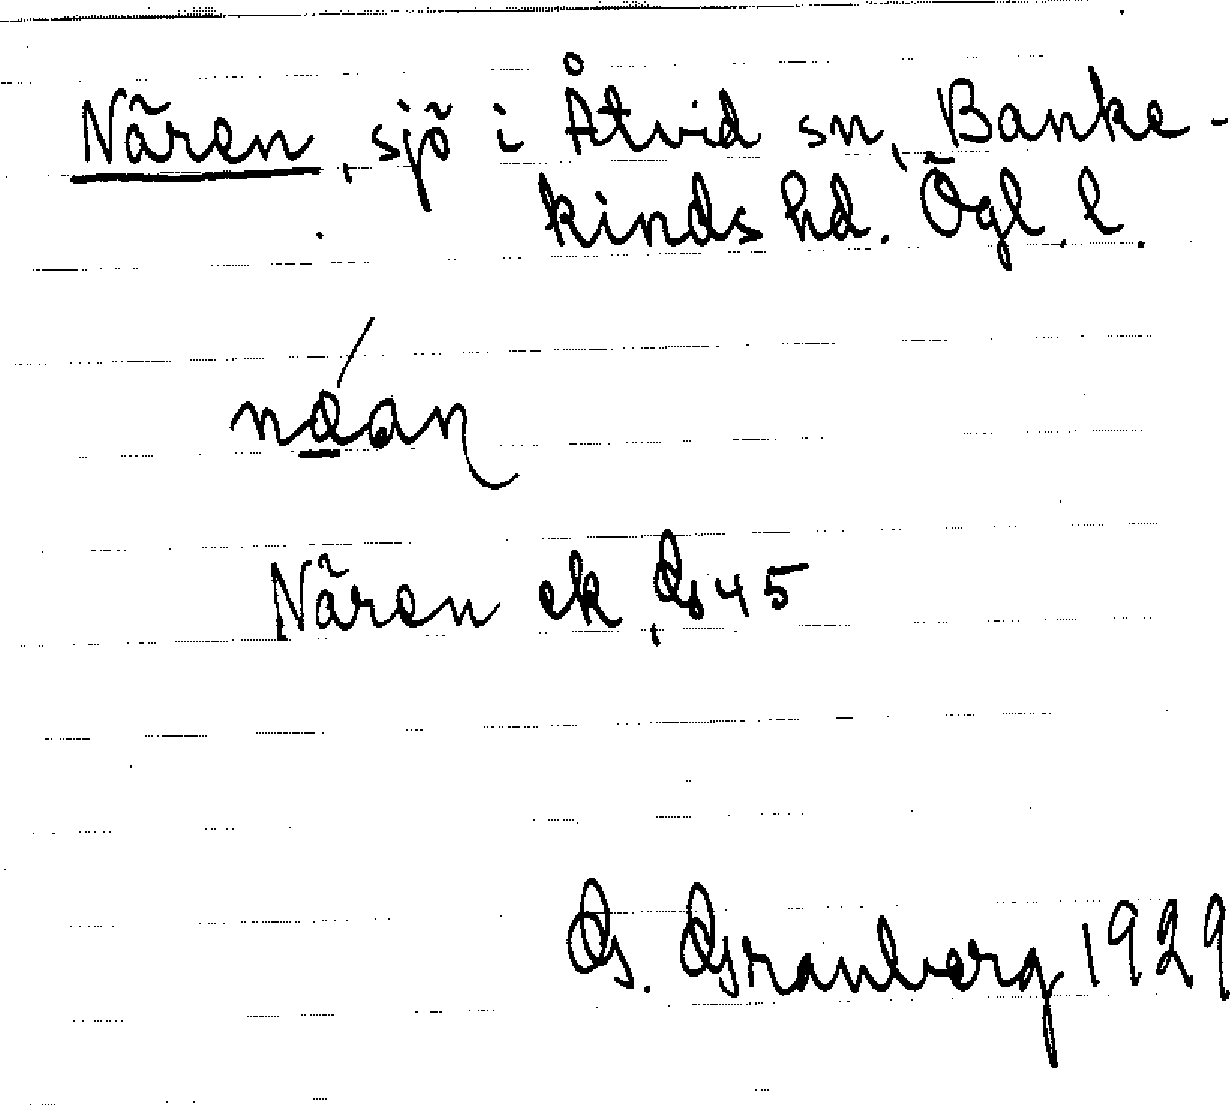 Nären, sjö i Åtvid sn, Banke-
kinds hd. Ögl. l.
Nären ek, Gs 45
G. Granberg 1929